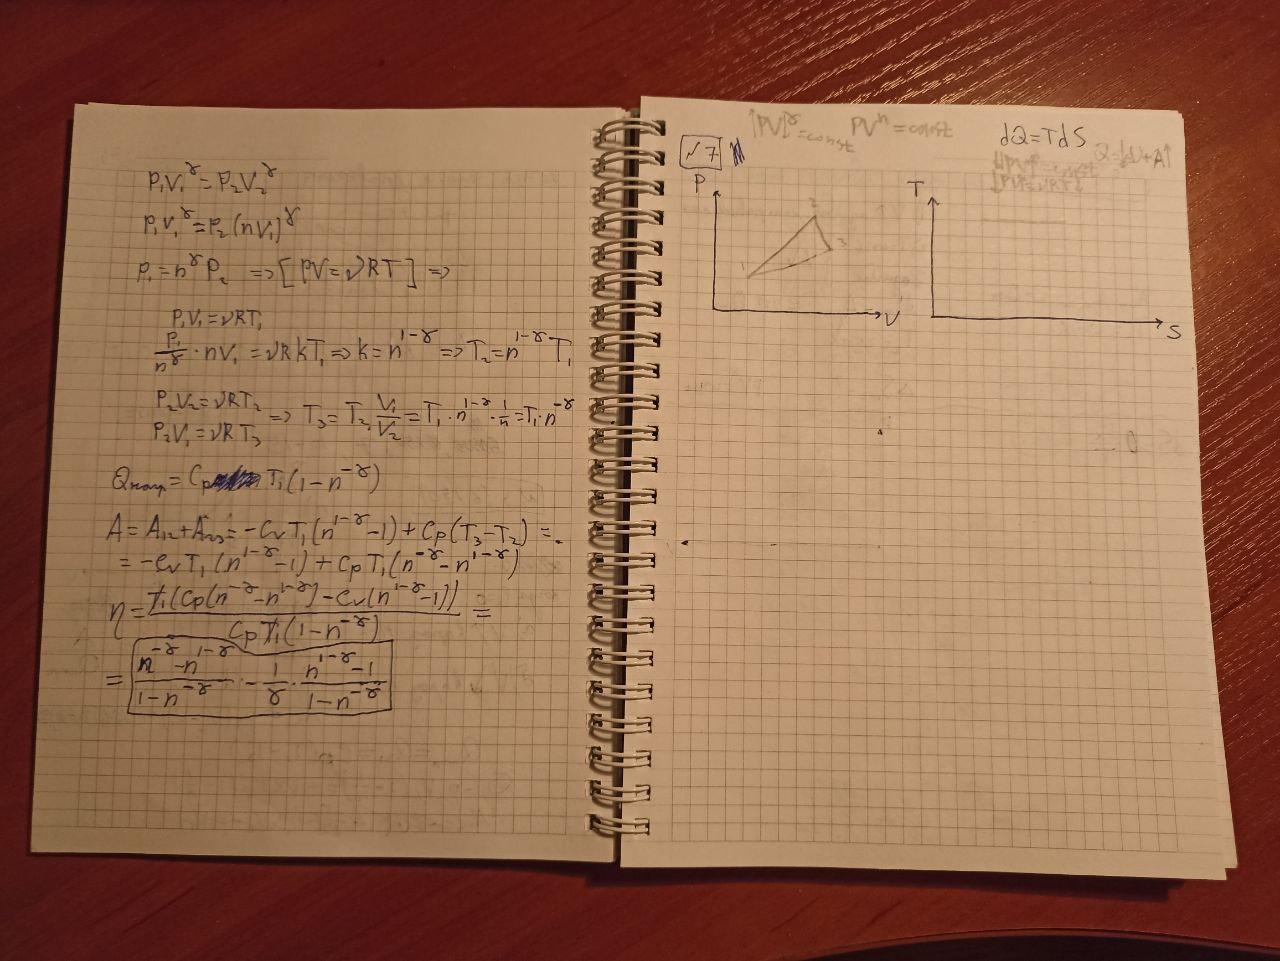 P₁V₁^γ = P₂V₂^γ
P₁V₁^γ = P₂(nV₁)^γ
P₁ = n^γ P₂ => [PV = νRT] =>
P₁V₁ = νRT₁
P₁/n^γ · nV₁ = νRkT₁ => k = n^(1-γ) => T₂ = n^(1-γ) T₁
P₂V₂ = νRT₂
P₂V₁ = νRT₃
=> T₃ = T₂ V₁/V₂ = T₁ · n^(1-γ) · 1/n = T₁ · n^(-γ)
= C_p T₁(1 - n^(-γ))
A = A₁₂ + A₂₃ = -C_v T₁(n^(1-γ) - 1) + C_p(T₃ - T₂) =
= -C_v T₁(n^(1-γ) - 1) + C_p T₁(n^(-γ) - n^(1-γ))
η = T₁(C_p(n^(-γ) - n^(1-γ)) - C_v(n^(1-γ) - 1)) / C_p T₁(1 - n^(-γ)) =
= (n^(-γ) - n^(1-γ))/(1 - n^(-γ)) - 1/γ · (n^(1-γ) - 1)/(1 - n^(-γ))
↑PV↓^γ = const PV^n = const dQ = TdS
√7
P
1
2
3
V
T
S